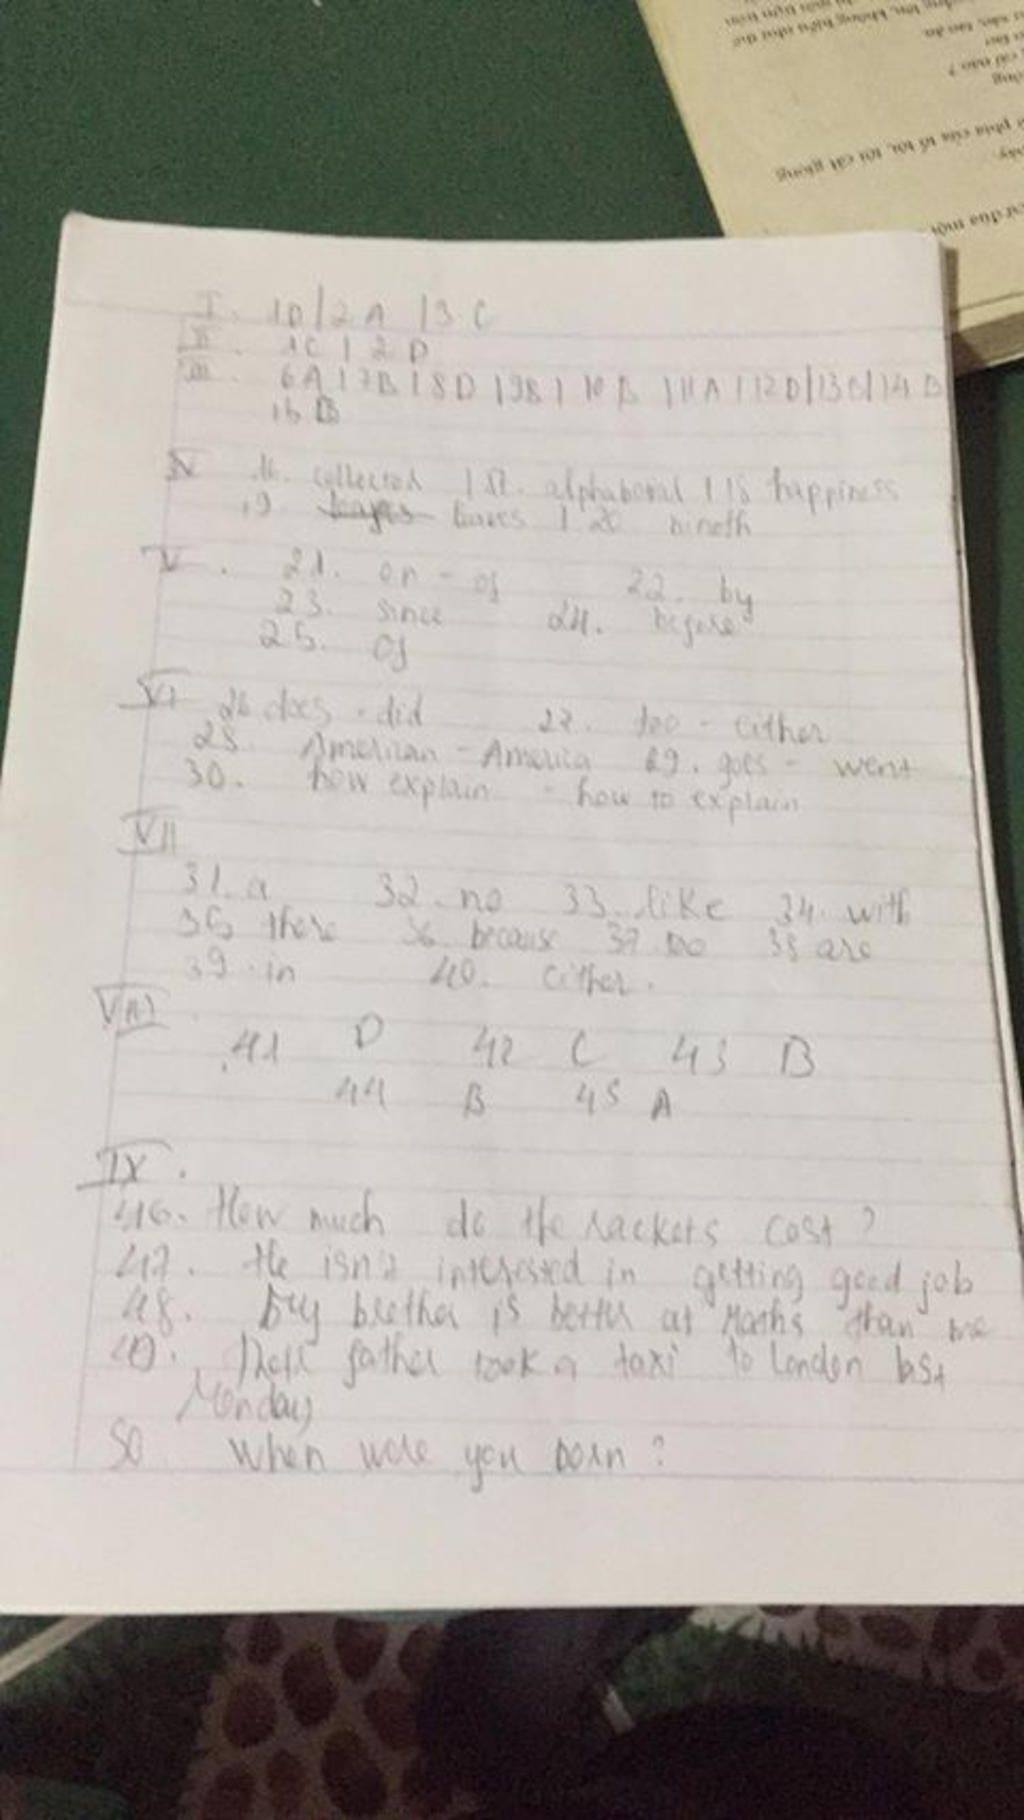 I. 1D / 2A / 3C
II. 1C / 2D
III. 6A / 7B / 8D / 9B / 10B / 11A / 12D / 13B / 14B
15B
IV 16. collected / 17. / 18 happiness
19. leaves / 20 nineth
V. 21. on - of 22. by
23. since 24. before
25. of
VI 26 does - did 27. too - either
28. American - America 29. goes - went
30. how explain - how to explain
VII
31. a 32. no 33. like 34. with
35 there 36. because 37. 38 are
39. in 40. either.
VIII.
41 D 42 C 43 B
44 B 45 A
IX.
46. How much do the rackets cost?
47. He isn't interested in getting good job
48. My brother is better at Maths than me
49. father took a taxi to London last
Monday
50 When were you born?
ở phía của tổ tôi, tôi cất giọng
cái nào?